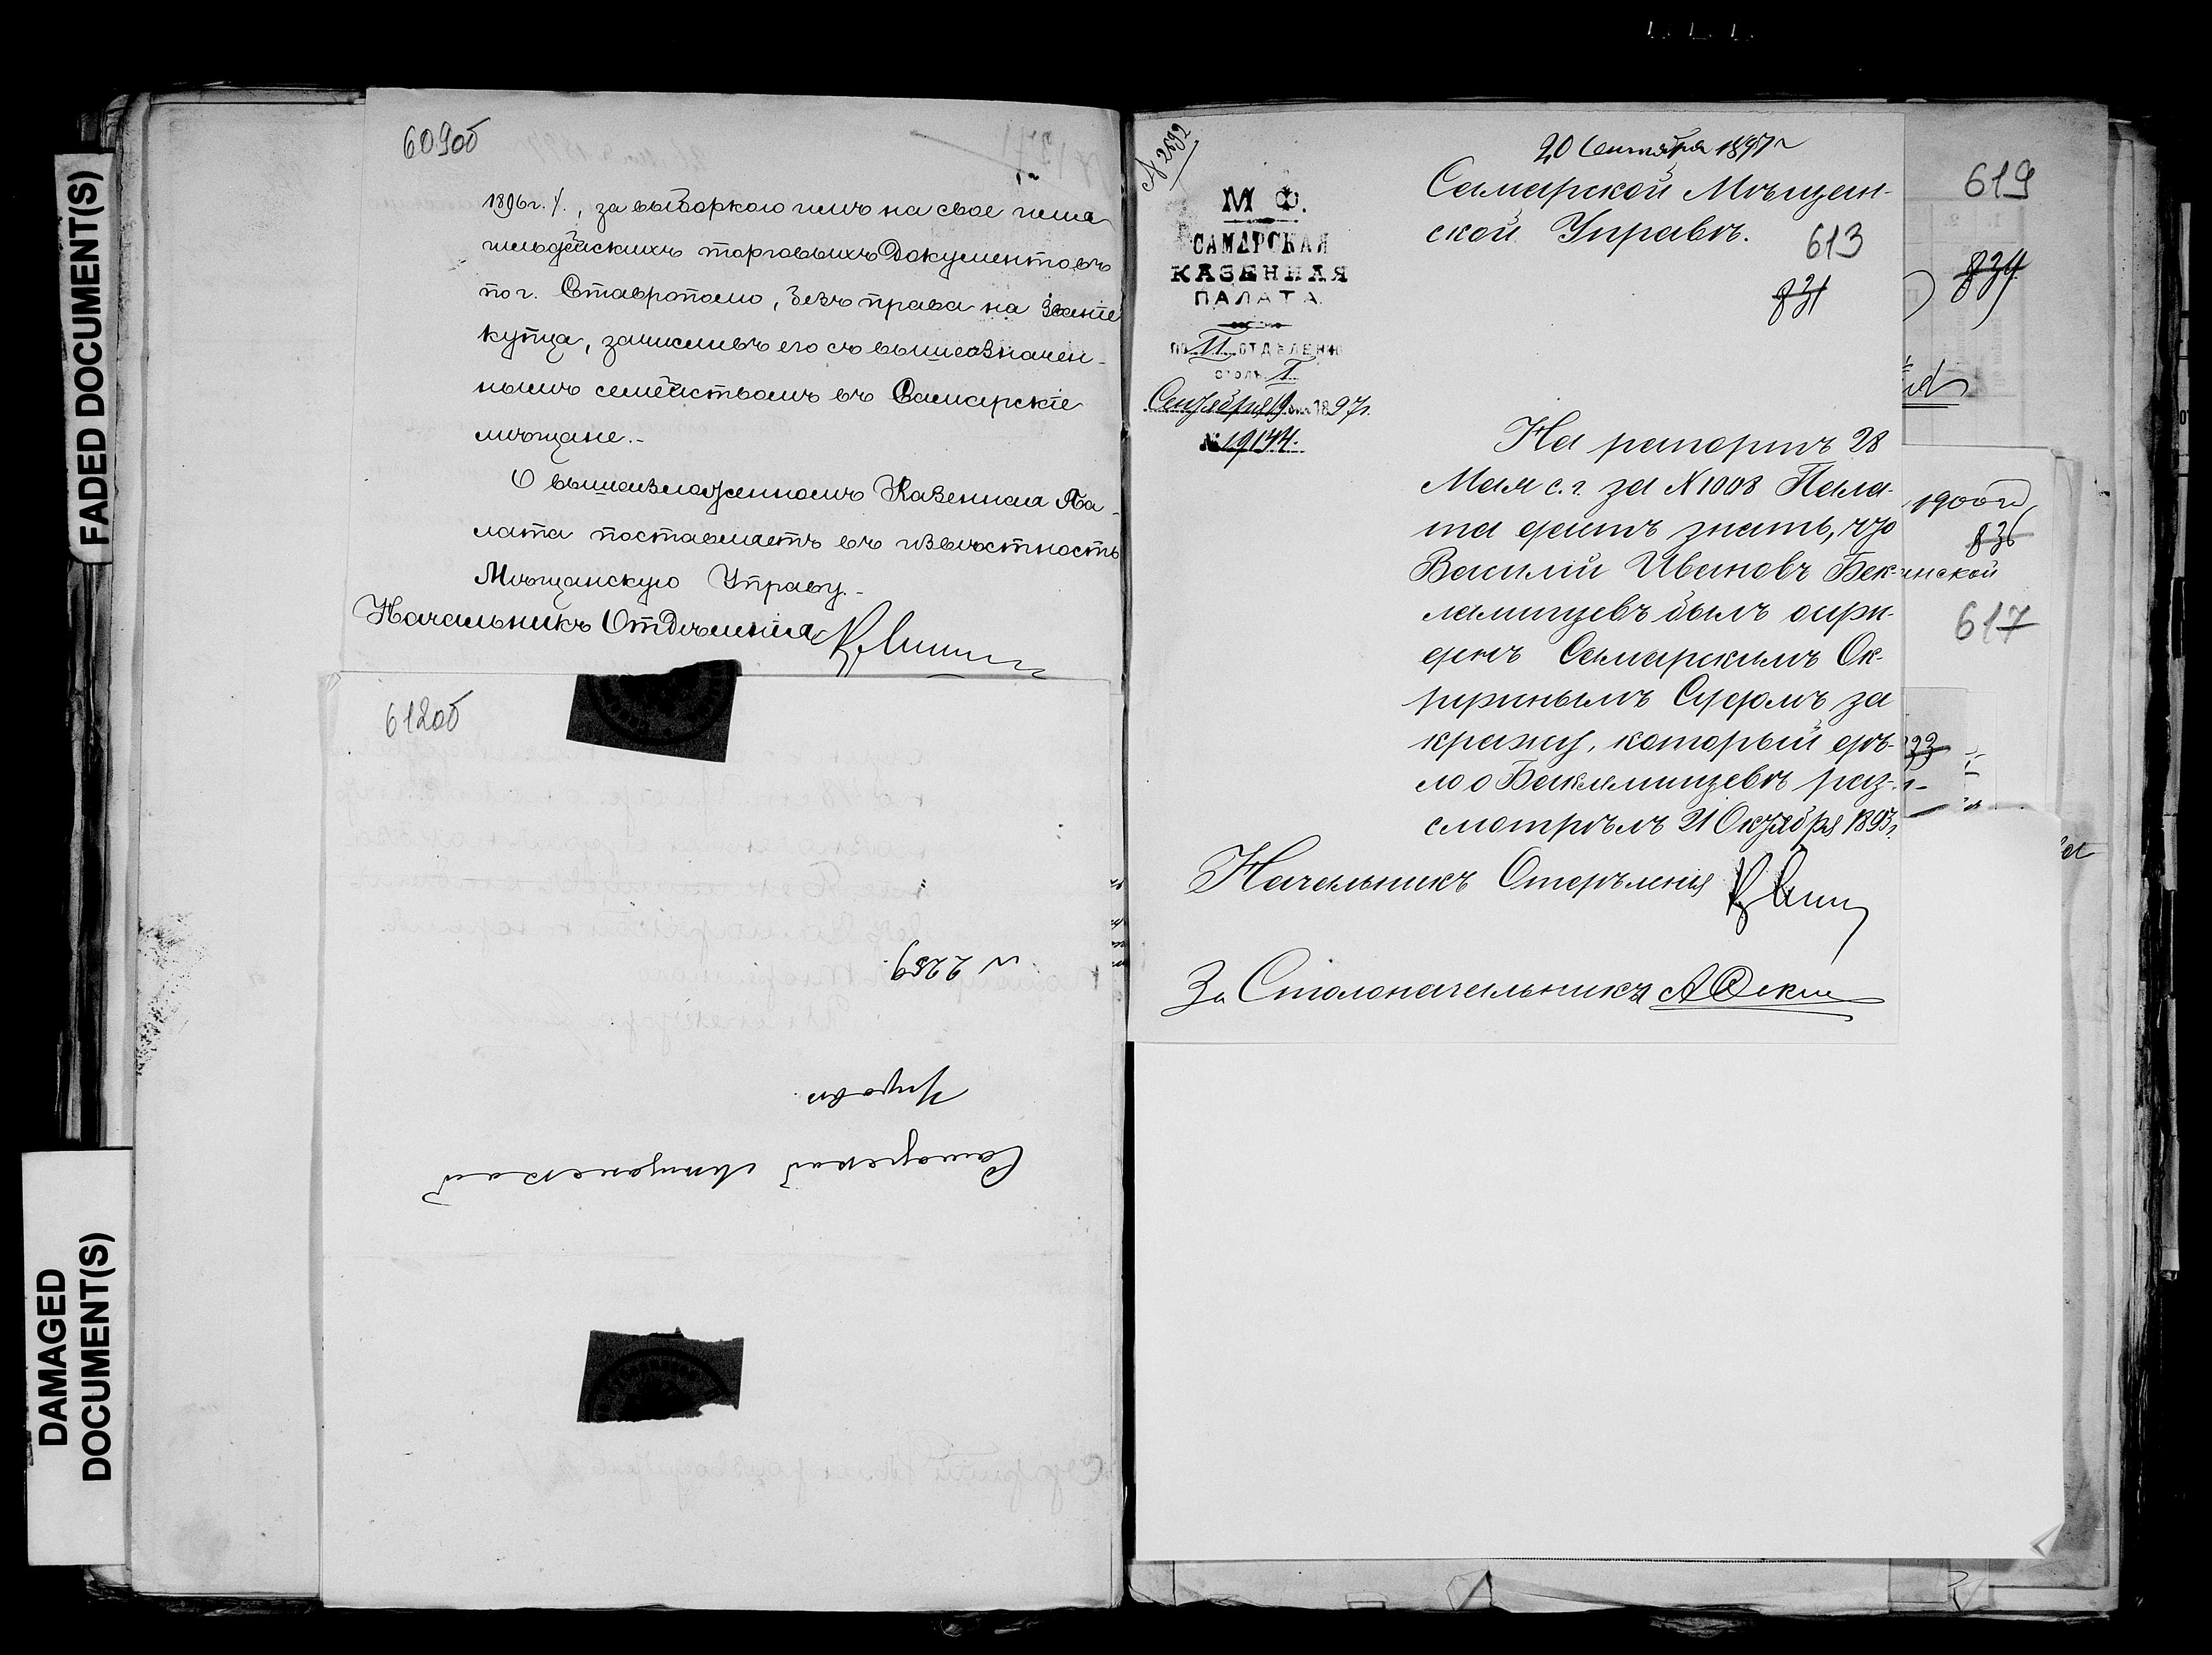 FADED DOCUMENT(S)
DAMAGED
DOCUMENT(S)
609об
1896г. г., за выборкою имъ на свое имя
гильдейскихъ торговыхъ документовъ
по г. Ставрополю, безъ права на званіе
купца, зачисливъ его съ вышеозначен-
нымъ семействомъ въ Самарскіе
мѣщане.-
О вышеизложенномъ Казенная Па-
лата поставляетъ въ извѣстность
Мѣщанскую Управу.-
Начальникъ Отдѣленія
612об
Самарской Мѣщанской
Управѣ
№ 2289
№ 2692
20 Сентября 1897г
М Ф.
САМАРСКАЯ
КАЗЕННАЯ
ПАЛАТА.
ПО II ОТДѢЛЕНІЮ
СТОЛЪ I
Сентября 19 дня 1897г.
№ 19144.
Самарской Мѣщан-
ской Управѣ.
613
831
На рапортъ 28
Мая с.г. за N 1008 Пала-
та даетъ знать, что
Василій Ивановъ Бек-
лемишевъ былъ осуж-
денъ Самарскимъ Ок-
ружнымъ Судомъ за
кражу, который дѣ-
ло о Беклемишевѣ раз-
смотрѣлъ 21 Октября 1893г.
Начальникъ Отдѣленія
За Столоначальника
619
834
1900г
836
анской
617